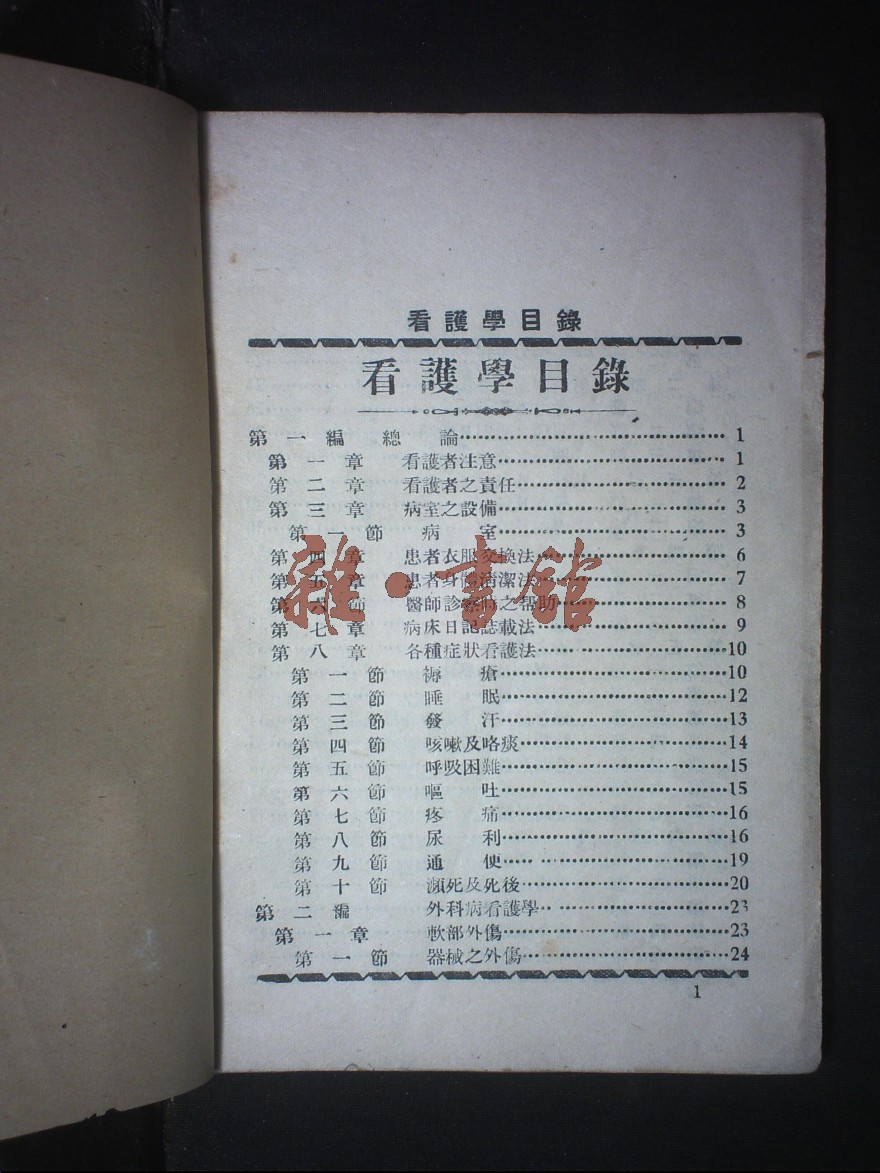 看護學目錄
看護學目錄
第一編 總論 1
第一章 看護者注意 1
第二章 看護者之責任 2
第三章 病室之設備 3
第一節 病室 3
第四章 患者衣服交換法 6
第五章 患者身體清潔法 7
第六節 醫師診察時之帮助 8
第七章 病床日記誌載法 9
第八章 各種症狀看護法 10
第一節 褥瘡 10
第二節 睡眠 12
第三節 發汗 13
第四節 咳嗽及咯痰 14
第五節 呼吸困難 15
第六節 嘔吐 15
第七節 疼痛 16
第八節 尿利 16
第九節 通便 19
第十節 瀕死及死後 20
第二編 外科病看護學 23
第一章 軟部外傷 23
第一節 器械之外傷 24
1
雜·書館